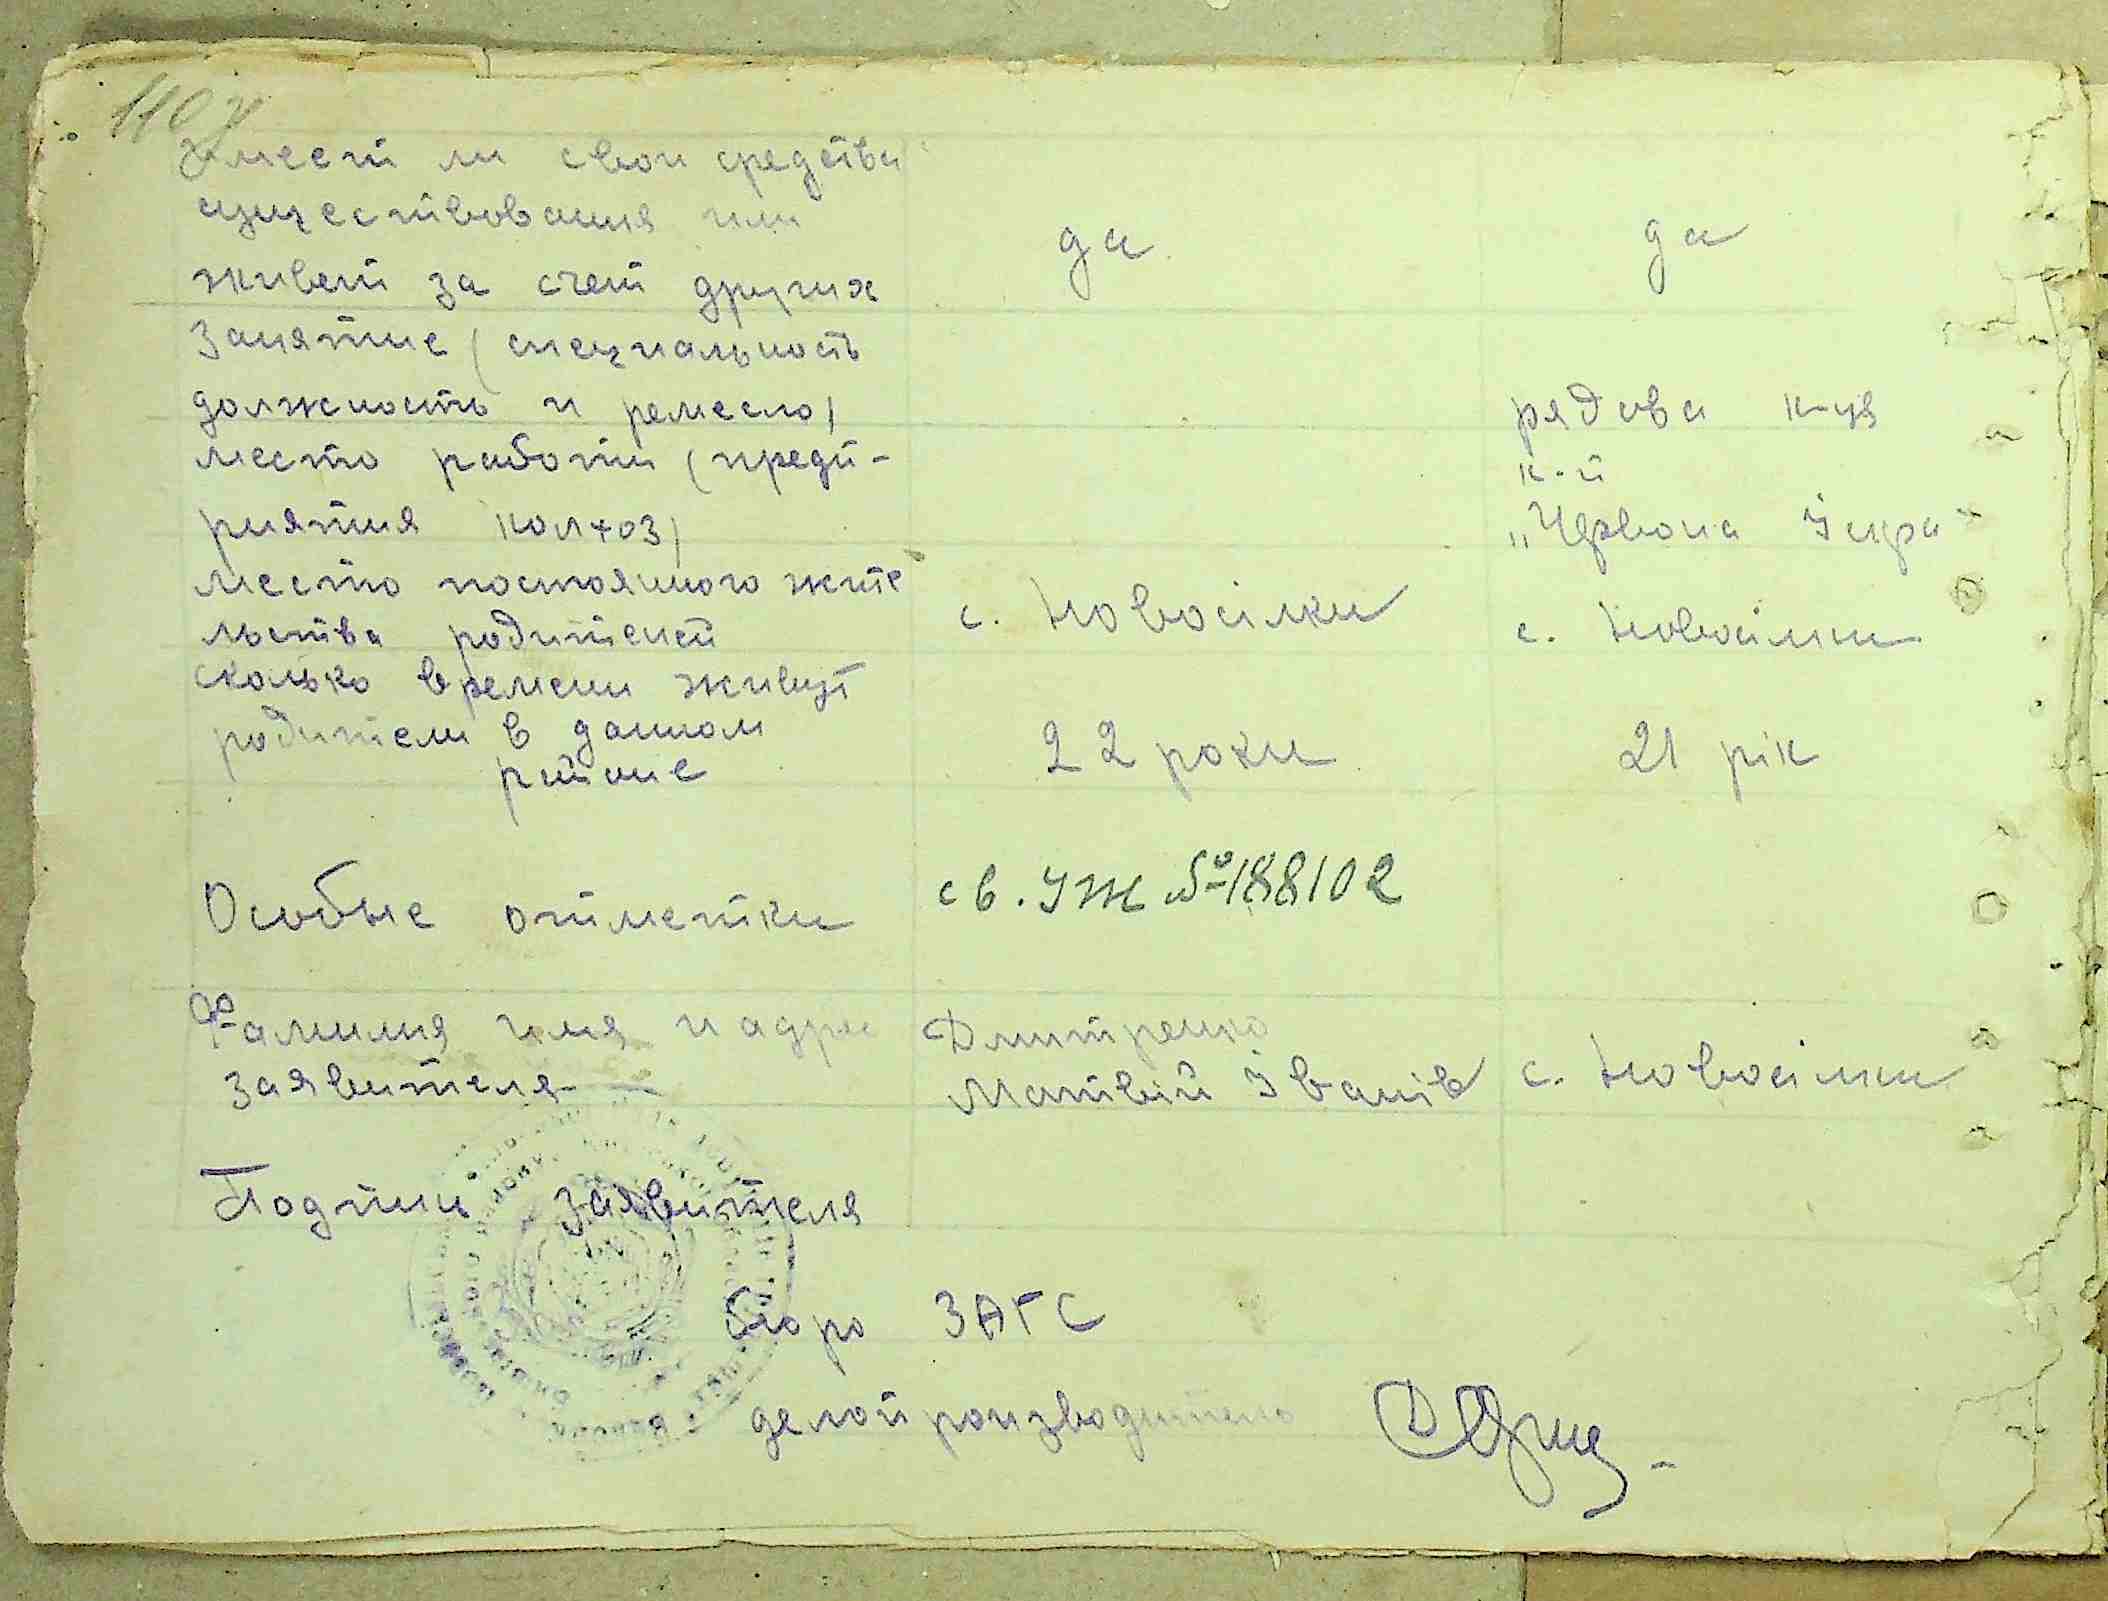 имеет ли свои средства
существования или
живет за счет других
да
да
Занятие (специальность
должность и ремесло)
рядова к-ця
место работи (предп-
риятия колхоз)
к-п
"Червона Iскра"
место постоянного жите
льства родителей
с. Новосілки
с. Новосілки
сколько времени живут
родители в данном
районе
22 роки
21 рік
Особые отметки
св. УЖ № 188102
Фамилия имя и адрес
заявителя
Дмитренко
Матвій Iванів
с. Новосілки
Подпись заявителя
Бюро ЗАГС
делопроизводитель